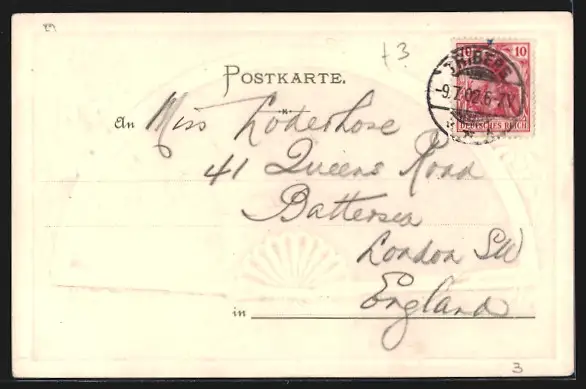 POSTKARTE.
10 10
TRIBERG
-9.7.02.6-7N
DEUTSCHES REICH
An Miss Loderhose
41 Queens Road
Battersea
London SW
England
in
3